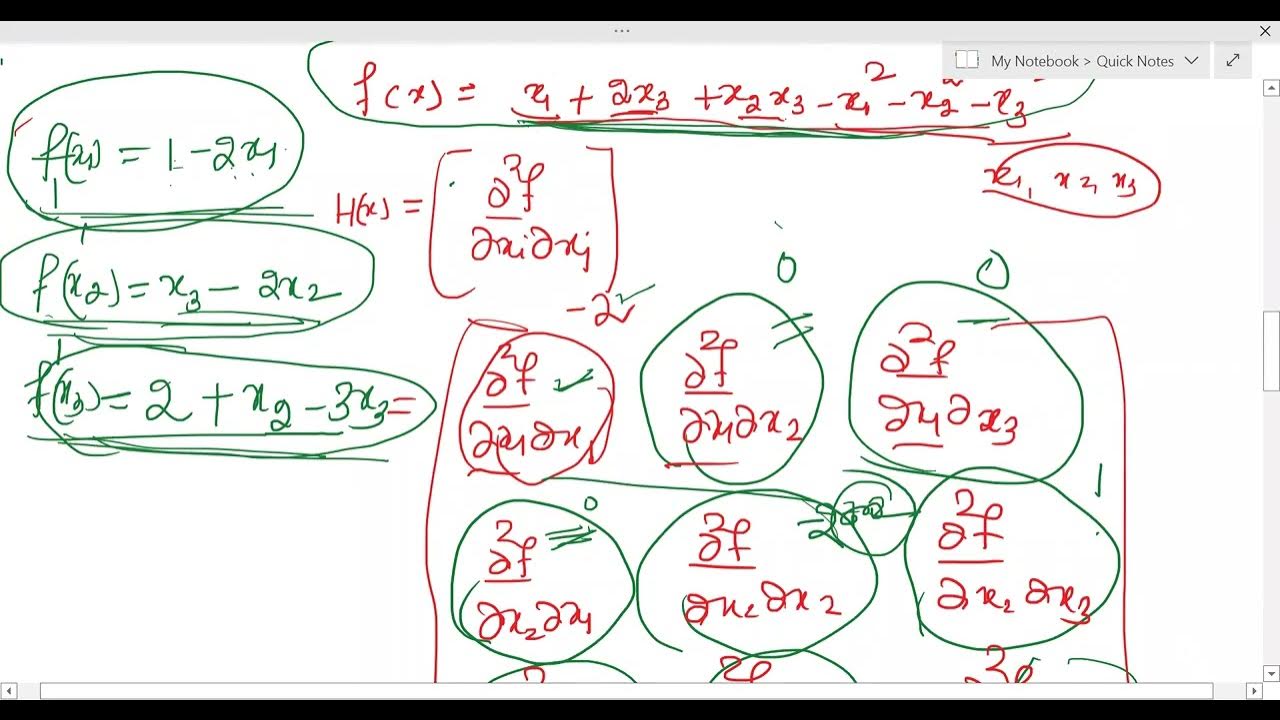 My Notebook > Quick Notes
f(x) = x₁ + 2x₃ + x₂x₃ - x₁² - x₂² - x₃²
f'(x₁) = 1 - 2x₁
x₁, x₂, x₃
H(x) = [∂²f / ∂xi∂xj]
f'(x₂) = x₃ - 2x₂
0 0
-2
f'(x₃) = 2 + x₂ - 3x₃ =
∂²f / ∂x₁∂x₁ ∂²f / ∂x₁∂x₂ ∂²f / ∂x₁∂x₃
0 -2 1
∂²f / ∂x₂∂x₁ ∂²f / ∂x₂∂x₂ ∂²f / ∂x₂∂x₃